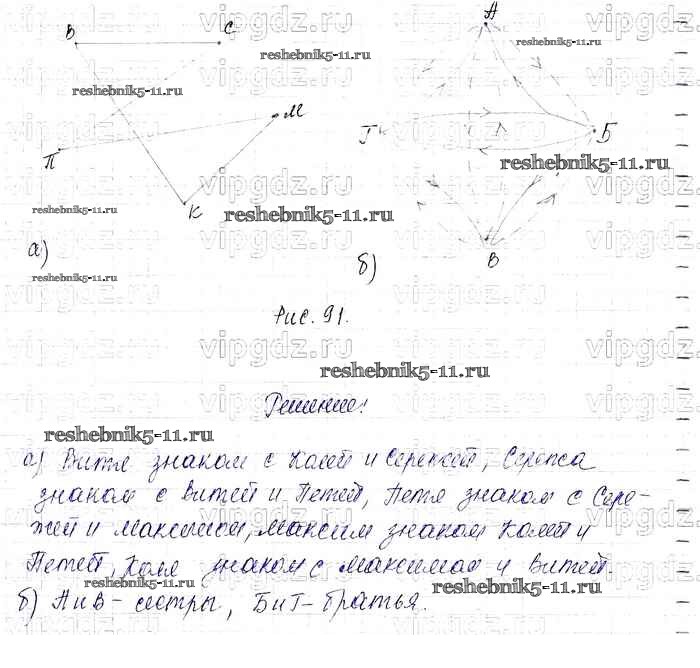 В С А
М
Г Б
П
К
В
а) б)
Рис. 91.
Решение:
а) Витя знаком с Колей и Сережей, Сережа
знаком с Витей и Петей, Петя знаком с Сере-
жей и Максимом, Максим знаком Колей и
Петей, Коля знаком с Максимом и Витей
б) А и В - сестры, Б и Г - братья.
vipgdz.ru
reshebnik5-11.ru